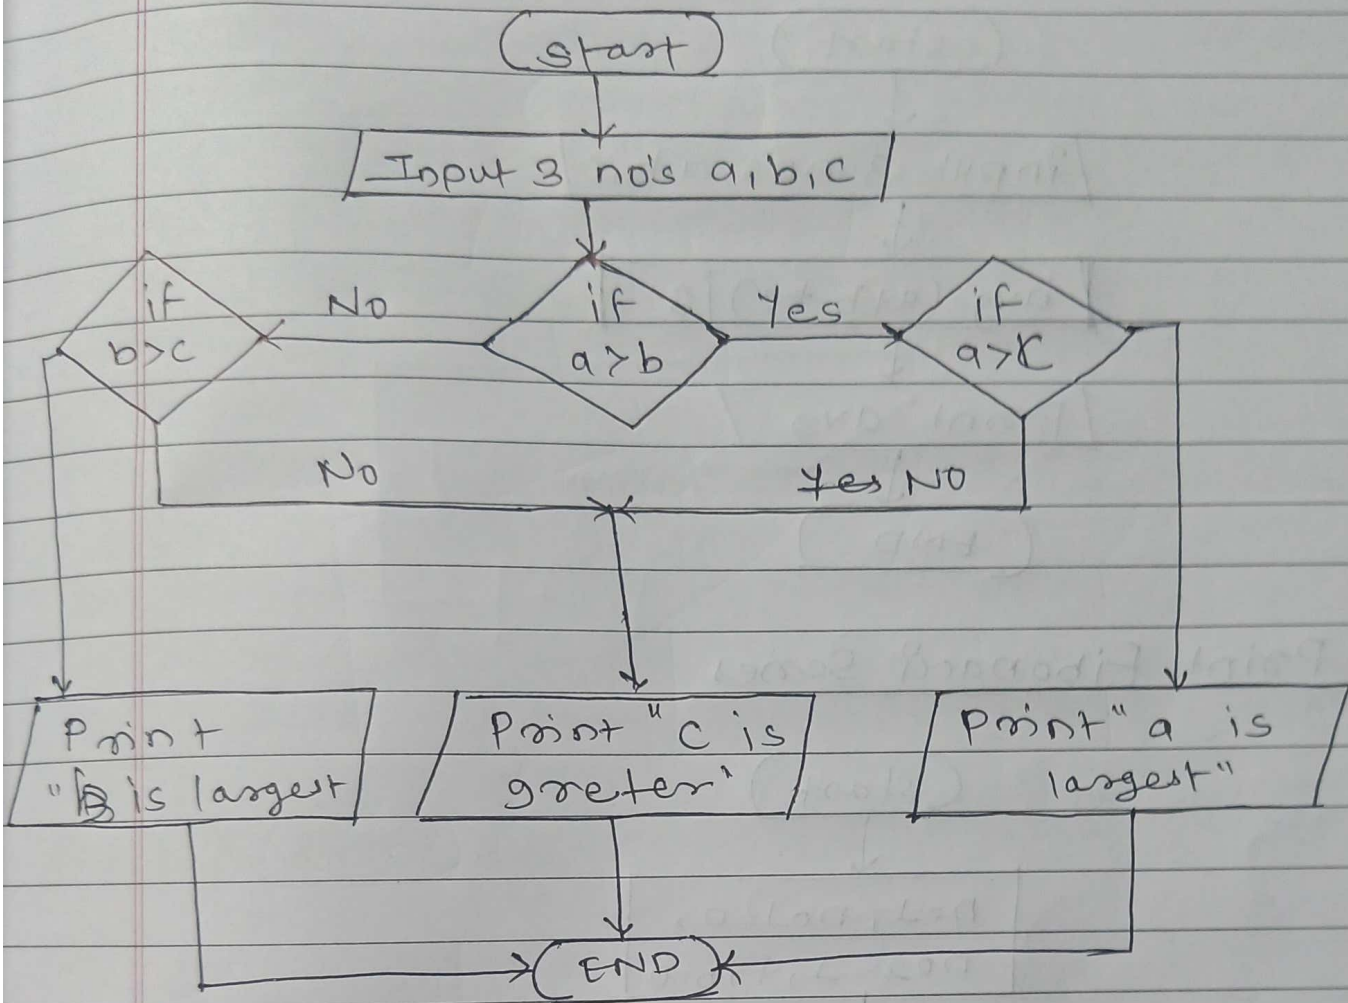 Start
Input 3 no's a, b, c
if
b>c
No
if
a>b
Yes
if
a>c
No
Yes NO
Print
"B is largest
Print "c is
greter"
Print "a is
largest"
END